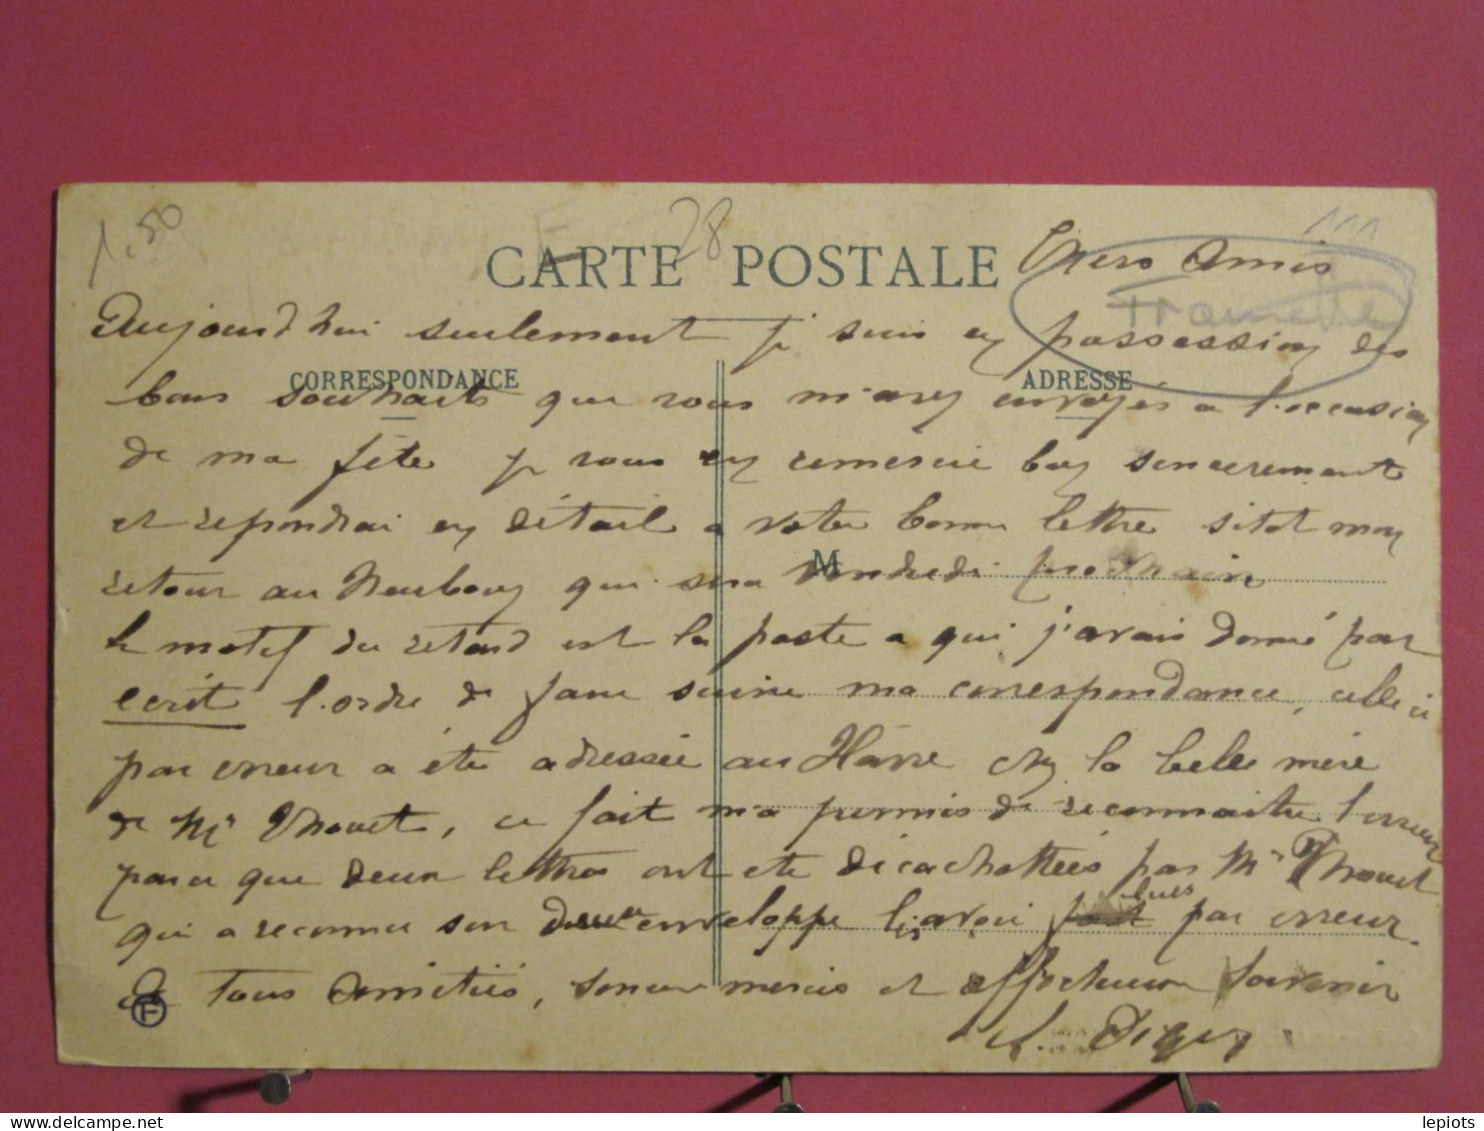 1,50
28
111
CARTE POSTALE
Chers Amis
Tramette
Aujourd'hui seulement je suis en possession des
CORRESPONDANCE
ADRESSE
bons souhaits que vous m'avez envoyés a l'occasion
de ma fête je vous en remercie bien sincerement
et repondrai en détail a votre bonne lettre sitot mon
M
retour au Neubourg qui sera vendredi prochain
le motif du retard est la poste a qui j'avais donné par
ecrit l'ordre de faire suivre ma correspondance, celle ci
par erreur a été adressée au Hâvre chez la belle mère
de Mr Thouet, ce fait m'a permis de reconnaitre l'erreur
parce que deux lettres ont ete décachettées par Mr Thouet
qui a reconnu sur enveloppe l'avoir lues par erreur.
A tous amitiés, sincere mercis et affectueux souvenir
F
lepiots
delcampe.net